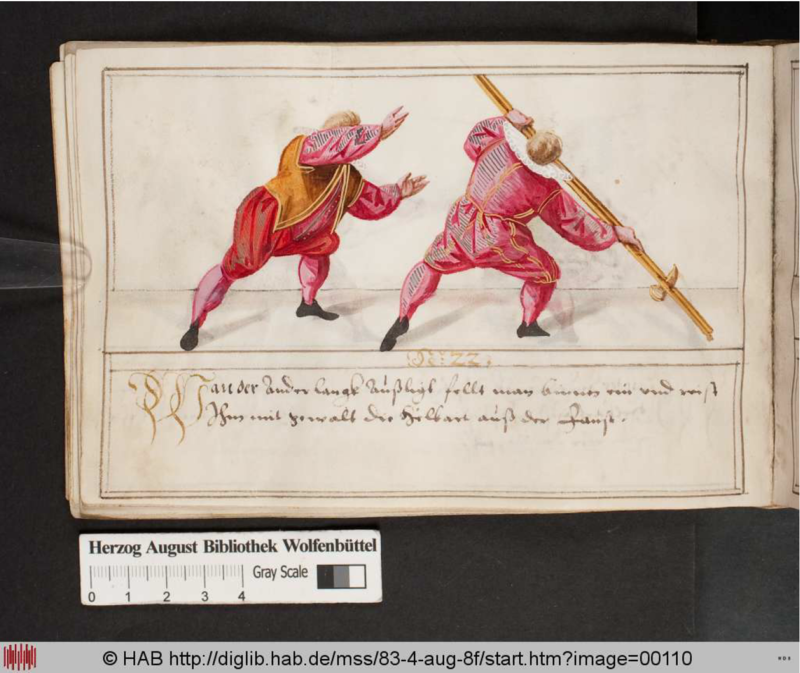 N: 22.
Wan der Ander langk außligt fellt man binnen ein vnd reist
Ihm mit gewalt die Helbart auß der Faust.
Herzog August Bibliothek Wolfenbüttel
Gray Scale
0 1 2 3 4
© HAB http://diglib.hab.de/mss/83-4-aug-8f/start.htm?image=00110